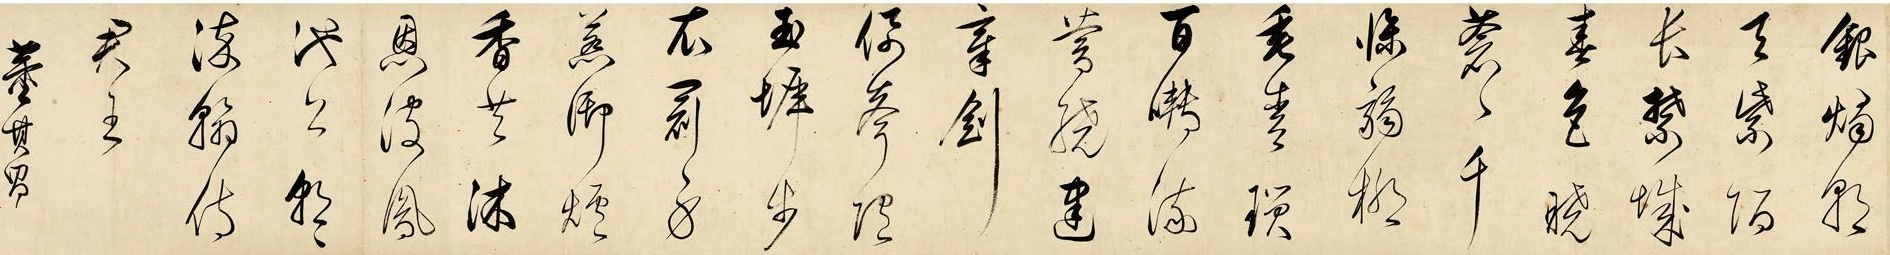 銀燭朝
天紫陌
長禁城
春色曉
蒼〻千
條弱柳
垂青瑣
百囀流
鶯繞建
章劍
佩聲隨
玉墀步
衣冠身
惹御爐
香共沐
恩波鳳
池上朝〻
染翰侍
君王
董其昌